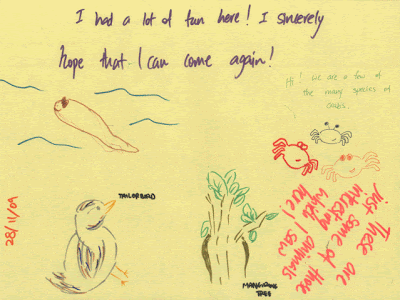 I had a lot of fun here! I sincerely
hope that I can come again!
Hi! We are a few of
the many species of
crabs.
28/11/09
TAILORBIRD
MANGROVE
TREE
These are
just some of those
interesting animals
which I saw
here!